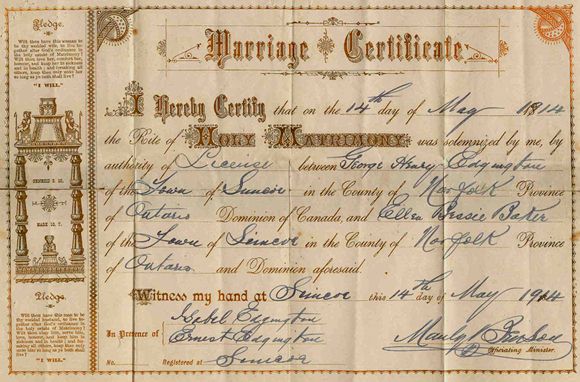 Pledge.
Wilt thou have this woman to
be thy wedded wife, to live to-
gether after God's ordinance in
the holy estate of Matrimony?
Wilt thou love her, comfort her,
honour, and keep her in sickness
and in health; and forsaking all
others, keep thee only unto her
so long as ye both shall live?
"I WILL."
GENESIS 2. 18.
MARK 10. 7.
Pledge.
Wilt thou have this man to be
thy wedded husband, to live to-
gether after God's ordinance in
the holy estate of Matrimony?
Wilt thou obey him, serve him,
love, honour, and keep him in
sickness and in health; and for-
saking all others, keep thee only
unto him so long as ye both shall
live?
"I WILL."
Marriage Certificate
I Hereby Certify that on the 14th day of May 1914
the Rite of HOLY MATRIMONY was solemnized by me, by
authority of License between George Henry Edgington
of the Town of Simcoe in the County of Norfolk Province
of Ontario Dominion of Canada, and Ellen Bessie Baker
of the Town of Simcoe in the County of Norfolk Province
of Ontario and Dominion aforesaid.
Witness my hand at Simcoe this 14th day of May 1914
In Presence of Edgington
Ernest Edgington
Officiating Minister.
No. Registered at Simcoe